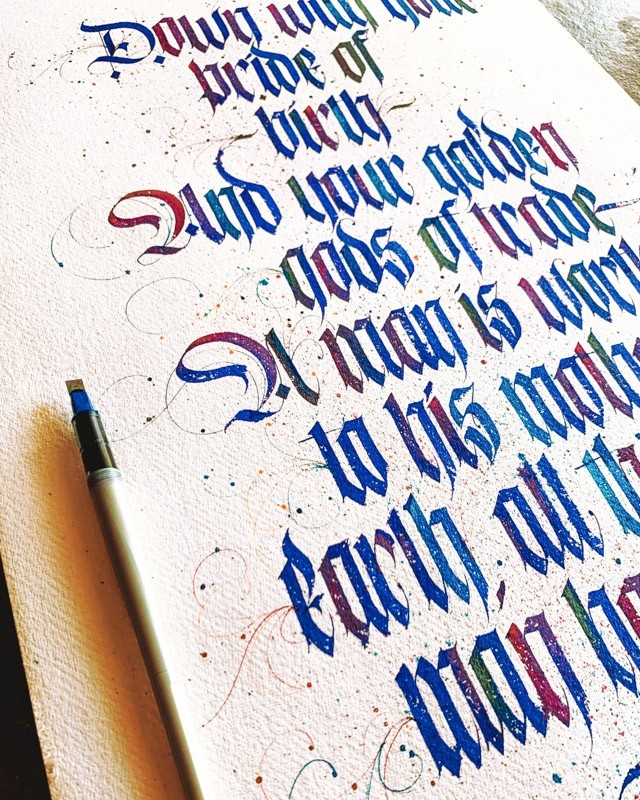 Down with your
pride of
birth
And your golden
gods of trade
A man is worth
to his mother
Earth, all
man